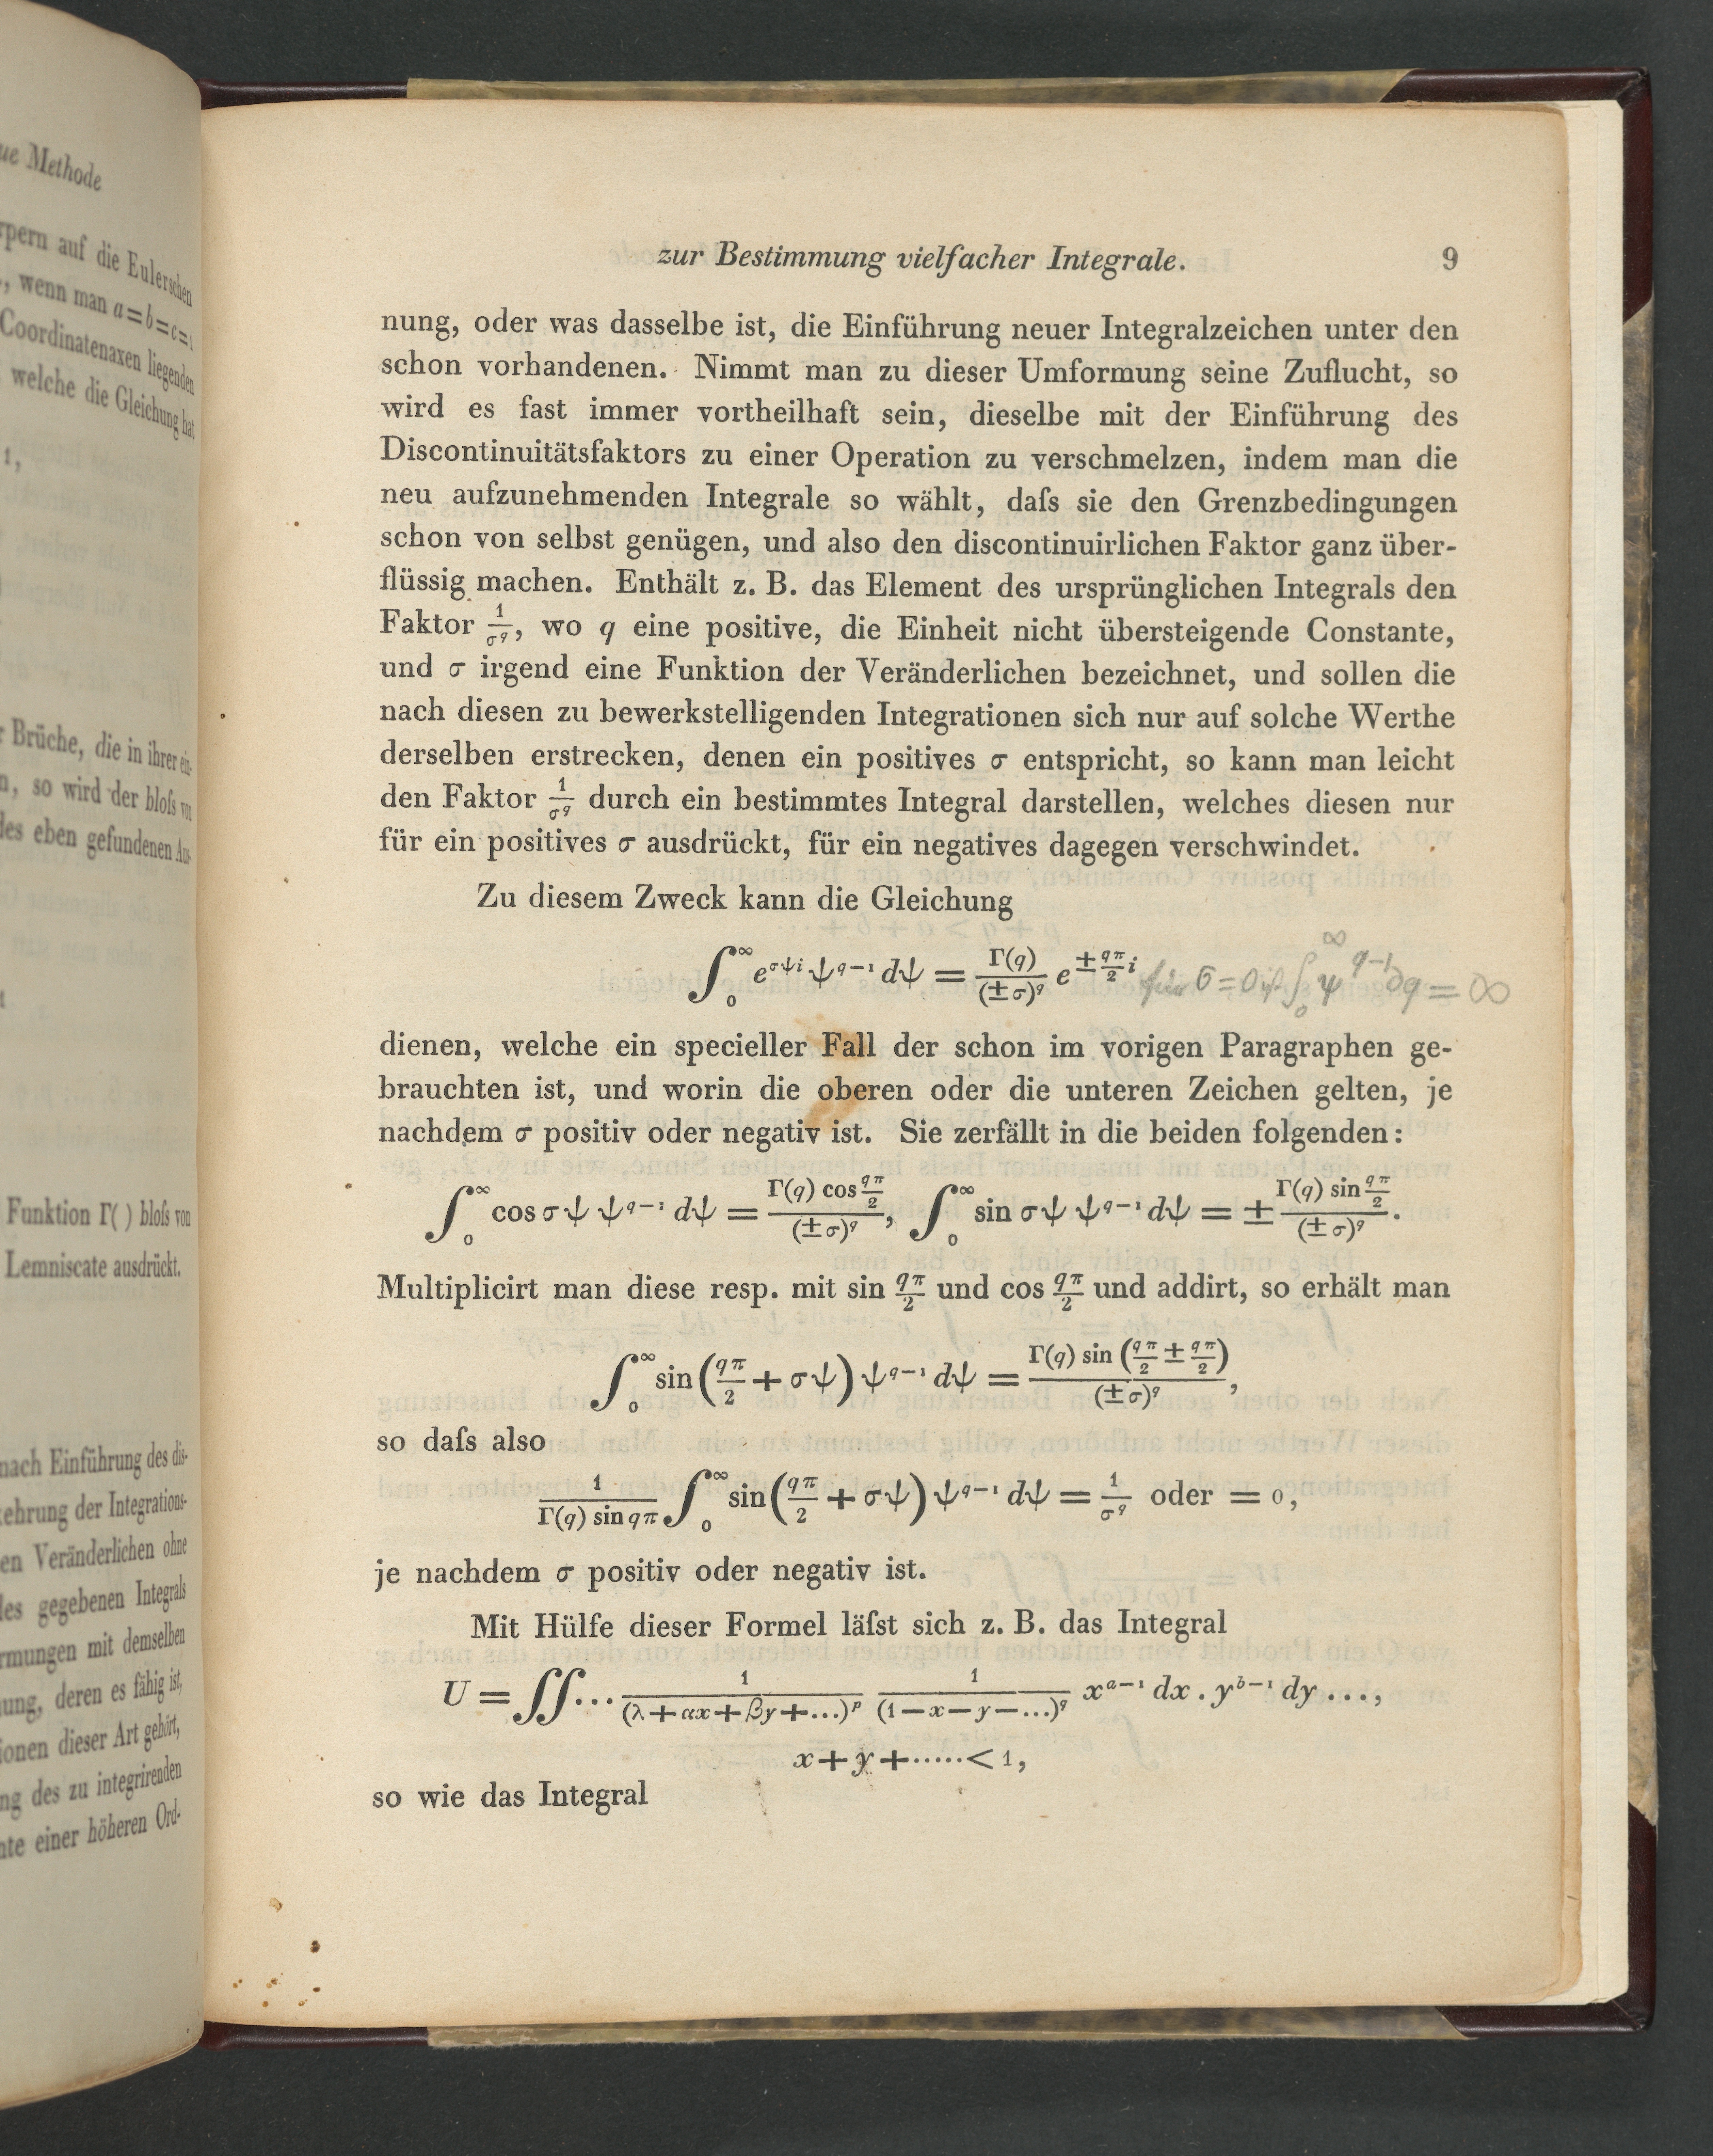 ue Methode
rpern auf die Eulerschen
., wenn man a=b=c=1
Coordinatenaxen liegenden
welche die Gleichung hat
1,
r Brüche, die in ihrer ein-
n, so wird der bloſs von
des eben gefundenen Aus-
Funktion Γ( ) bloſs von
Lemniscate ausdrückt.
nach Einführung des dis-
kehrung der Integrations-
en Veränderlichen ohne
des gegebenen Integrals
rmungen mit demselben
ung, deren es fähig ist,
ionen dieser Art gehört,
ng des zu integrirenden
nte einer höheren Ord-
zur Bestimmung vielfacher Integrale. 9
nung, oder was dasselbe ist, die Einführung neuer Integralzeichen unter den
schon vorhandenen. Nimmt man zu dieser Umformung seine Zuflucht, so
wird es fast immer vortheilhaft sein, dieselbe mit der Einführung des
Discontinuitätsfaktors zu einer Operation zu verschmelzen, indem man die
neu aufzunehmenden Integrale so wählt, daſs sie den Grenzbedingungen
schon von selbst genügen, und also den discontinuirlichen Faktor ganz über-
flüssig machen. Enthält z. B. das Element des ursprünglichen Integrals den
Faktor 1/σ^q, wo q eine positive, die Einheit nicht übersteigende Constante,
und σ irgend eine Funktion der Veränderlichen bezeichnet, und sollen die
nach diesen zu bewerkstelligenden Integrationen sich nur auf solche Werthe
derselben erstrecken, denen ein positives σ entspricht, so kann man leicht
den Faktor 1/σ^q durch ein bestimmtes Integral darstellen, welches diesen nur
für ein positives σ ausdrückt, für ein negatives dagegen verschwindet.
Zu diesem Zweck kann die Gleichung
∫_0^∞ e^{σψi} ψ^{q-1} dψ = Γ(q)/(±σ)^q e^{±(qπ/2)i} für σ=0 ist ∫_0^∞ ψ^{q-1} ∂q = ∞
dienen, welche ein specieller Fall der schon im vorigen Paragraphen ge-
brauchten ist, und worin die oberen oder die unteren Zeichen gelten, je
nachdem σ positiv oder negativ ist. Sie zerfällt in die beiden folgenden:
∫_0^∞ cos σψ ψ^{q-1} dψ = Γ(q) cos(qπ/2)/(±σ)^q, ∫_0^∞ sin σψ ψ^{q-1} dψ = ± Γ(q) sin(qπ/2)/(±σ)^q.
Multiplicirt man diese resp. mit sin qπ/2 und cos qπ/2 und addirt, so erhält man
∫_0^∞ sin(qπ/2 + σψ) ψ^{q-1} dψ = Γ(q) sin(qπ/2 ± qπ/2)/(±σ)^q,
so daſs also
1/(Γ(q) sin qπ) ∫_0^∞ sin(qπ/2 + σψ) ψ^{q-1} dψ = 1/σ^q oder = 0,
je nachdem σ positiv oder negativ ist.
Mit Hülfe dieser Formel läſst sich z. B. das Integral
U = ∫∫... 1/(λ+αx+βy+...)^p 1/(1-x-y-...)^q x^{a-1} dx . y^{b-1} dy ...,
x+y+.....<1,
so wie das Integral